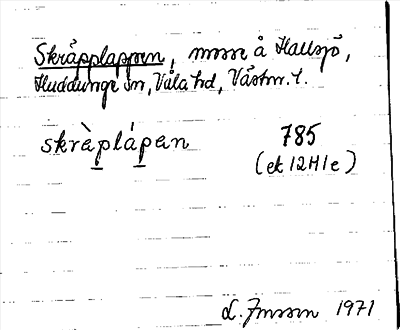 Skräpplappen, mosse å Hallsjö,
Huddunge sn, Våla hd, Västm. l.
skràplápan 785
(ek 12H1e)
L. Jonsson 1971